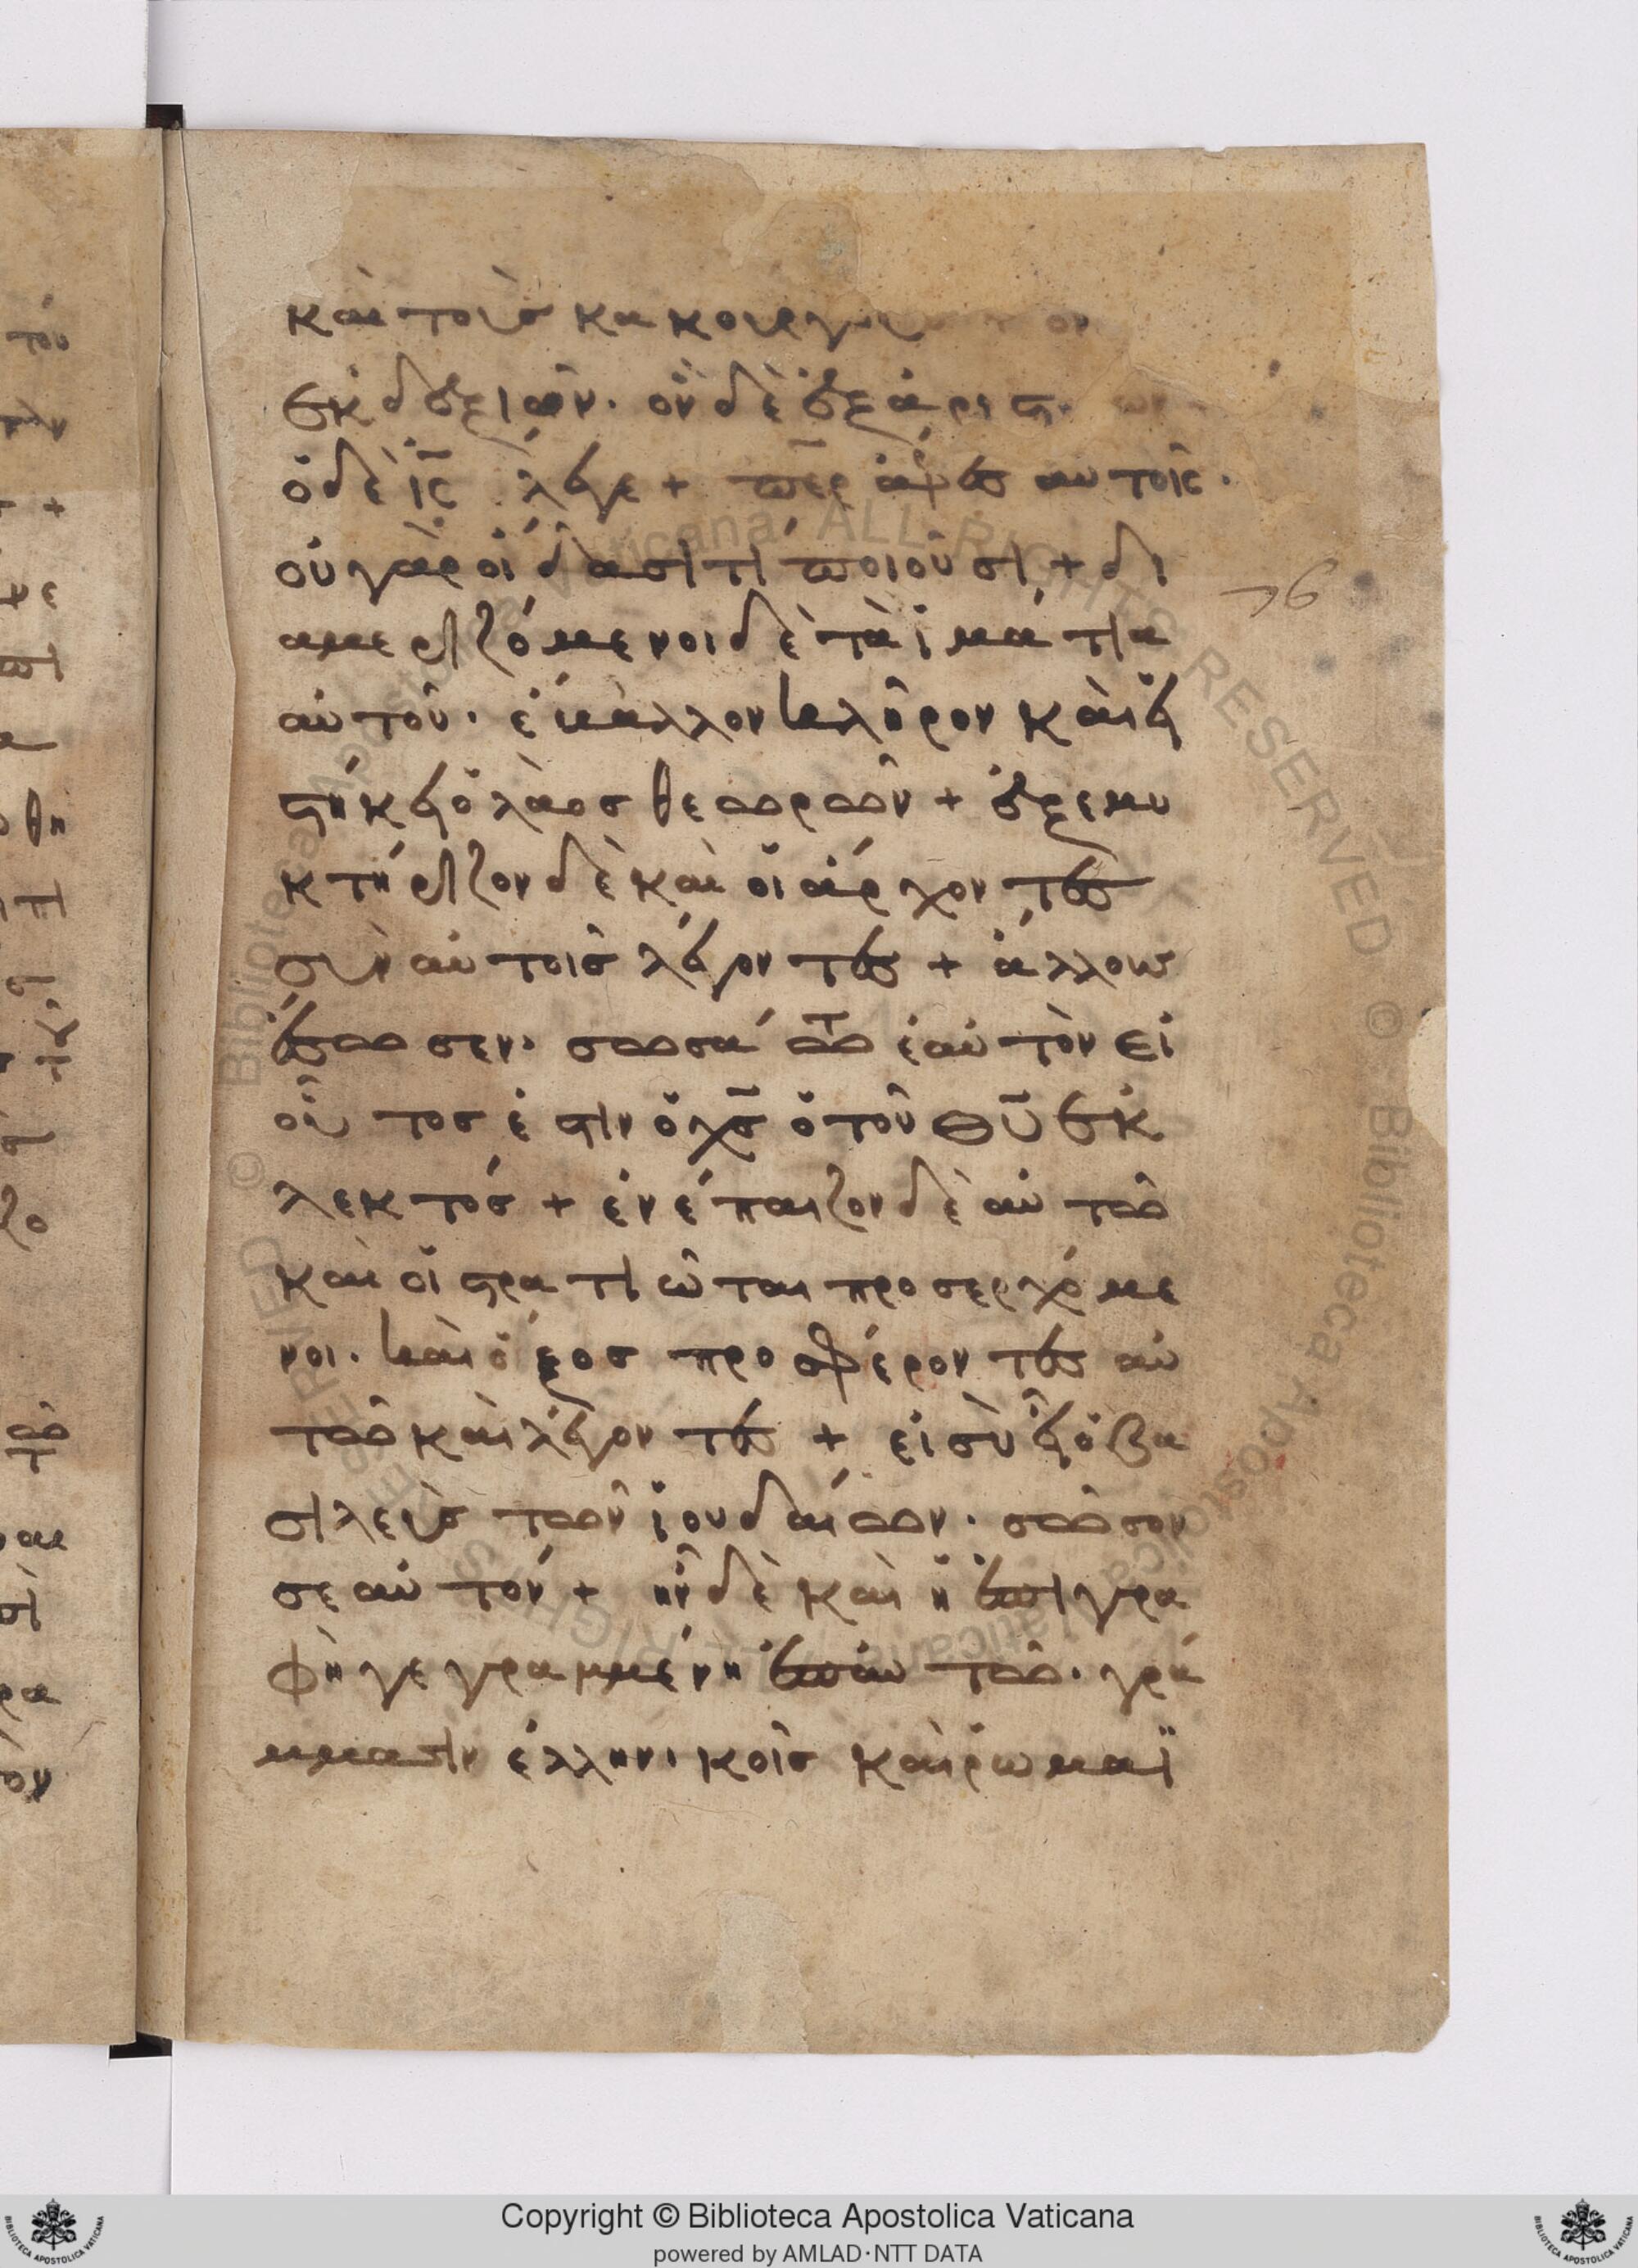 καὶ τοὺς κακούργους ον
ἐκ δεξιῶν· ὃν δὲ ἐξ ἀριστ ων
ὁ δὲ ις̅ ἔλεγε + περ ἄφες αυτοῖς·
οὐ γὰρ οἴδασι τί ποιοῦσι + δι
αμεριζόμενοι δὲ τὰ ἱμάτια
αὐτοῦ· ἔβαλλον κλῆρον καὶ εἱ
στήκει ὁ λαὸς θεωρῶν + ἐξεμυ
κτήριζον δὲ καὶ οἱ ἄρχοντες
σὺν αὐτοῖς λέγοντες + ἄλλους
ἔσωσεν· σωσάτω ἑαὐτὸν εἰ
οὗτός ἐστιν ὁ χς̅ ὁ τοῦ θυ̅ ἐκ
λεκτός + ἐνέπαιζον δὲ αὐτῶ
καὶ οἱ στρατιῶται προσερχόμε
νοι· καὶ ὄξος προσφέροντες αὐ
τῶ καὶ λέγοντες + εἰ σὺ εἶ ὁ βα
σιλεὺς τῶν ἰουδαίων· σῶσον
σεαὐτόν + ἦν δὲ καὶ ἡ ἐπιγρα
φὴ γεγραμμένη ἐπ αὐτῶ· γρά
μμασιν ἑλληνικοῖς καὶ ῥωμαϊ
76
Copyright © Biblioteca Apostolica Vaticana
powered by AMLAD·NTT DATA